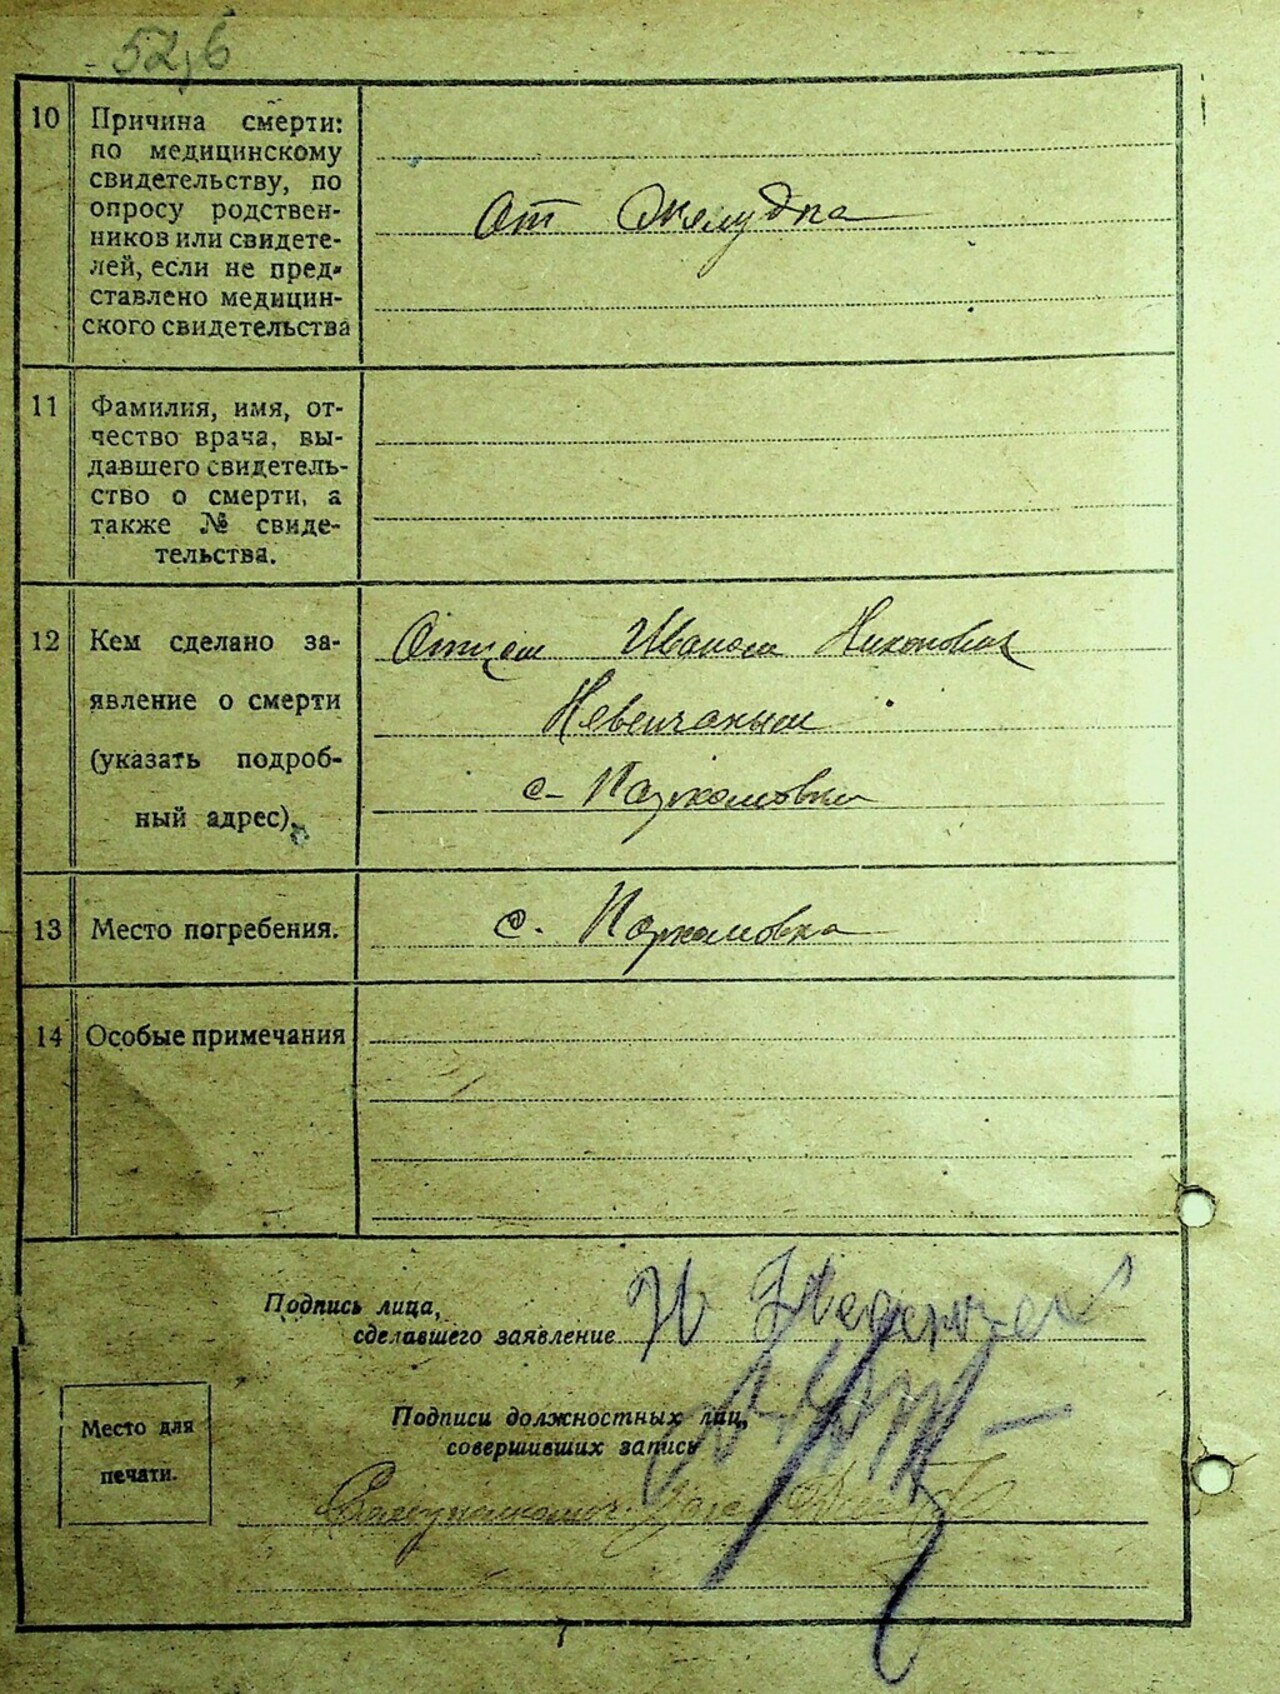 52,6
10
Причина смерти:
по медицинскому
свидетельству, по
опросу родствен-
ников или свидете-
лей, если не пред-
ставлено медицин-
ского свидетельства
От Желудка
11
Фамилия, имя, от-
чество врача, вы-
давшего свидетель-
ство о смерти, а
также № свиде-
тельства.
12
Кем сделано за-
явление о смерти
(указать подроб-
ный адрес).
Отцем Иваном
Невенчаным
с-
13
Место погребения.
с. Паркомовка
14
Особые примечания
Подпись лица,
сделавшего заявление
Подписи должностных лиц,
совершивших запись
Место для
печати.